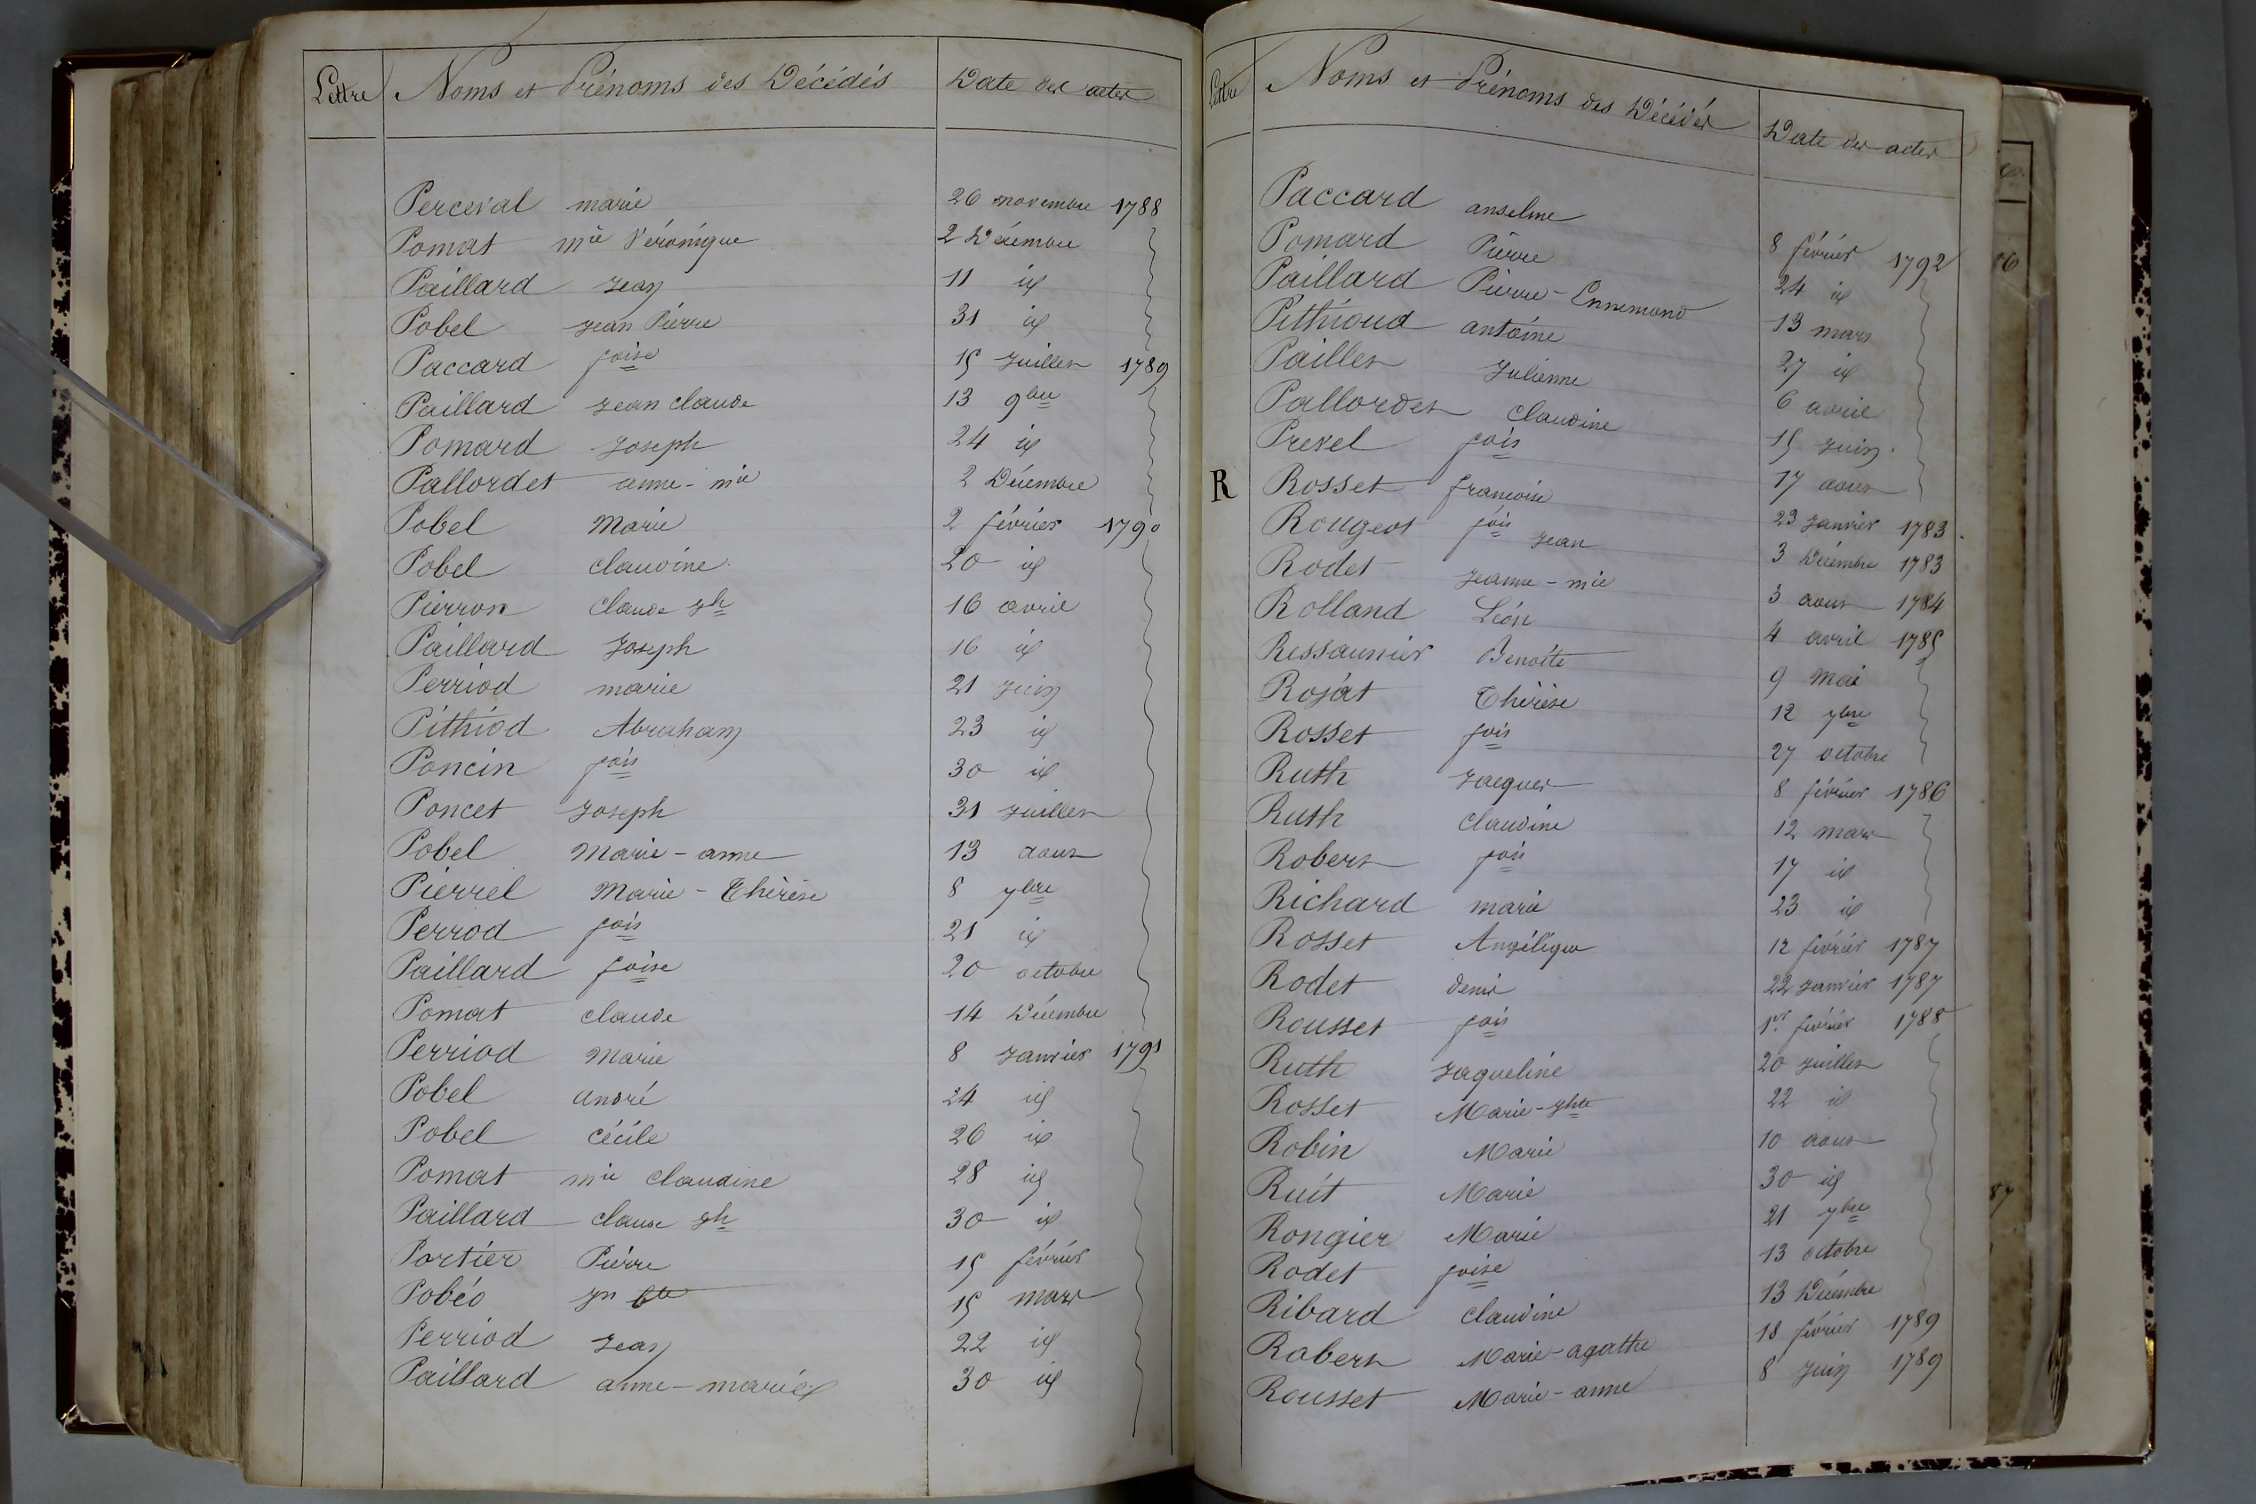 Lettre Noms et Prénoms des Décédés Date des actes
Perceval marie 26 novembre 1788
Pomat mie Véronique 2 Décembre
Paillard Jean 11 id
Pobel Jean Pierre 31 id
Paccard foise 15 Juillet 1789
Paillard Jean claude 13 9bre
Pomard Joseph 24 id
Pallordet anne-mie 2 Décembre
Pobel Marie 2 février 1790
Pobel claudine 20 id
Pierron claude Jh 16 avril
Paillard Joseph 16 id
Perriod marie 21 Juin
Pithiod Abraham 23 id
Poncin fois 30 id
Poncet Joseph 31 Juillet
Pobel Marie-anne 13 aout
Pierrel Marie-Thérèse 8 7bre
Perrod fois 21 id
Paillard foise 20 octobre
Pomat claude 14 Décembre
Perriod Marie 8 Janvier 1791
Pobel andré 24 id
Pobel cécile 26 id
Pomat mie claudine 28 id
Paillard claude Jh 30 id
Portier Pierre 15 février
Pobéo Jn bte 15 mars
Perriod Jean 22 id
Paillard anne-marie 30 id
Lettre Noms et Prénoms des Décédés Date des actes
Paccard anselme 8 février 1792
Pomard Pierre 24 id
Paillard Pierre-Ennemond 13 mars
Pithioud antoine 27 id
Paillet Julienne 6 avril
Pallordet Claudine 15 Juin
Prevel fois 17 aout
R Rosset francoise 23 Janvier 1783
Rougeot fois Jean 3 Décembre 1783
Rodet Jeanne-mie 3 aout 1784
Rolland Léon 4 avril 1785
Ressaunier Benoite 9 Mai
Rojat Thérèse 12 7bre
Rosset fois 27 octobre
Ruth Jacques 8 février 1786
Ruth claudine 12 mars
Robert fois 17 id
Richard marie 23 id
Rosset Angélique 12 février 1787
Rodet denis 22 Janvier 1787
Rousset fois 1er février 1788
Ruth Jaqueline 20 Juillet
Rosset Marie-Jhte 22 id
Robin Marie 10 aout
Ruit Marie 30 id
Rongier Marie 21 7bre
Rodet foise 13 octobre
Ribard claudine 13 Décembre
Robert Marie-agathe 18 février 1789
Rousset Marie-anne 8 Juin 1789